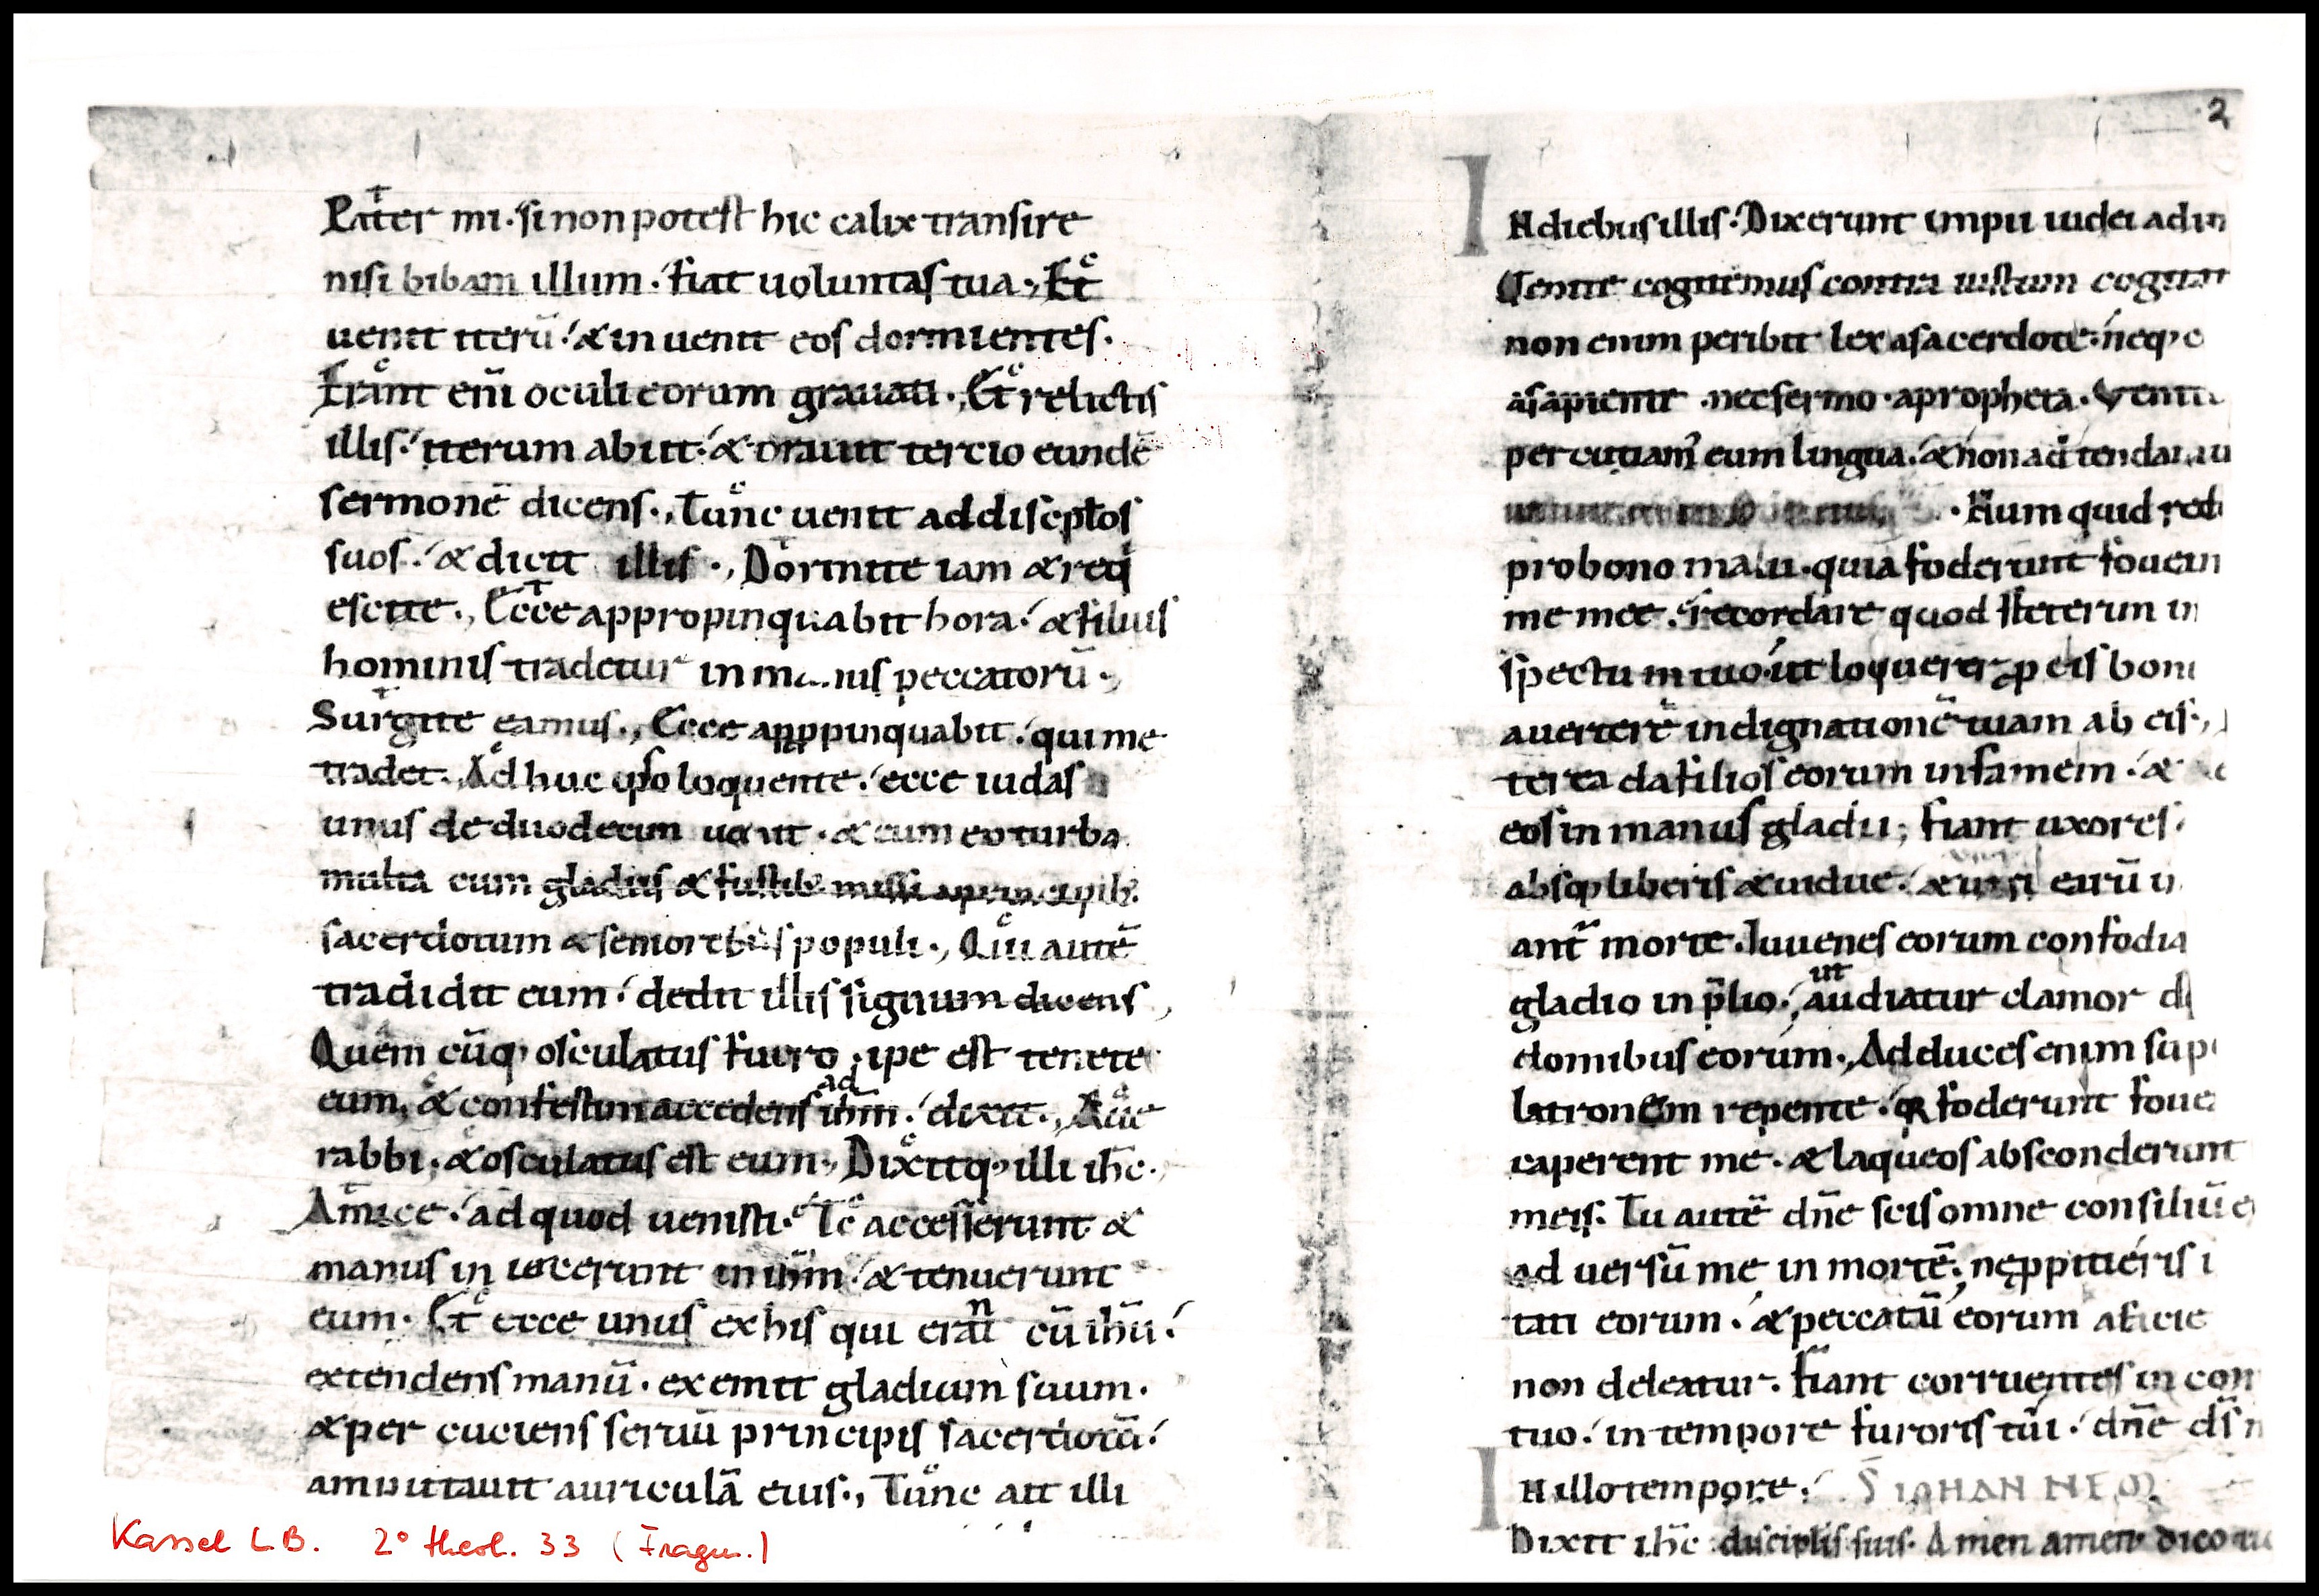 Pater mi · si non potest hic calix transire
nisi bibam illum · fiat uoluntas tua ·, Et
uenit iterū · & inuenit eos dormientes ·
Erant eni oculi eorum grauati ·, Et relictis
illis · iterum abiit · & orauit tercio eundē
sermonē dicens ·, Tunc uenit ad discip̄los
suos · & dicit illis ·, Dormite iam & req
escite ·, Ecce appropinquabit hora · & filius
hominis tradetur in peccatorū ·,
Surgite eamus ·, Ecce appinquabit · qui me
tradet ·, Adhuc ipso loquente · ecce iudas
unus de duodecim uenit · & cum eo turba
multa cum gladiis & fustib; missi a principib;
sacerdotum & senioribus populi ·, Qui autē
tradidit eum · dedit illis signum dicens ,
Quem cūq; osculatus fuero · ipe est tenete
eum, & confestim accedens ad ihm̄ · dixit ·, Aue
rabbi, & osculatus est eum ·, Dixitq; illi ih̄c ·,
Amice · ad quod uenisti · Tc̄ accesserunt &
manus iniecerunt in ihm̄ · & tenuerunt
eum · Et ecce unus ex his qui erant cū ihū ·
extendens manū · exemit gladium suum ·
& percuciens seruū principis sacerdotū ·
amputauit auriculā eius ·, Tunc ait illi
Kassel L.B. 2° theol. 33 (Fragm.)
2
In diebus illis · Dixerunt impii iudei ad in
Uenite cogitemus contra iustum cogitat
non enim peribit lex a sacerdote · neq; c
a sapiente · nec sermo a propheta · Uenit
percutiam' eum lingua · & non adtendam
· Numquid red
pro bono malu · quia foderunt fouem
me mee · recordare quod steterim in
spectu in tuo · ut loquerer p eis bon
auerterē indignationē tuam ab eis ·,
terea da filios eorum in famem · & 
eos in manus gladii ; fiant uxores
absq; liberis & uidue · & uiri eorū in
ant' morte · Iuuenes eorum confodia
gladio in p̄lio ·, ut audiatur clamor de
domibus eorum ·, Adduces enim sup
latronem repente · q foderunt foue
caperent me · & laqueos absconderunt
meis · Tu autē dn̄e scis omne consiliū e
aduersū me in mortē · ne ppitieris i
tati eorum · & peccatū eorum a facie
non deleatur · fiant corruentes in con
tuo · in tempore furoris tui · dn̄e ds̄ n
In illo tempore · S IOHANNEM
Dixit ih̄c discip̄lis suis · Amen amen dico